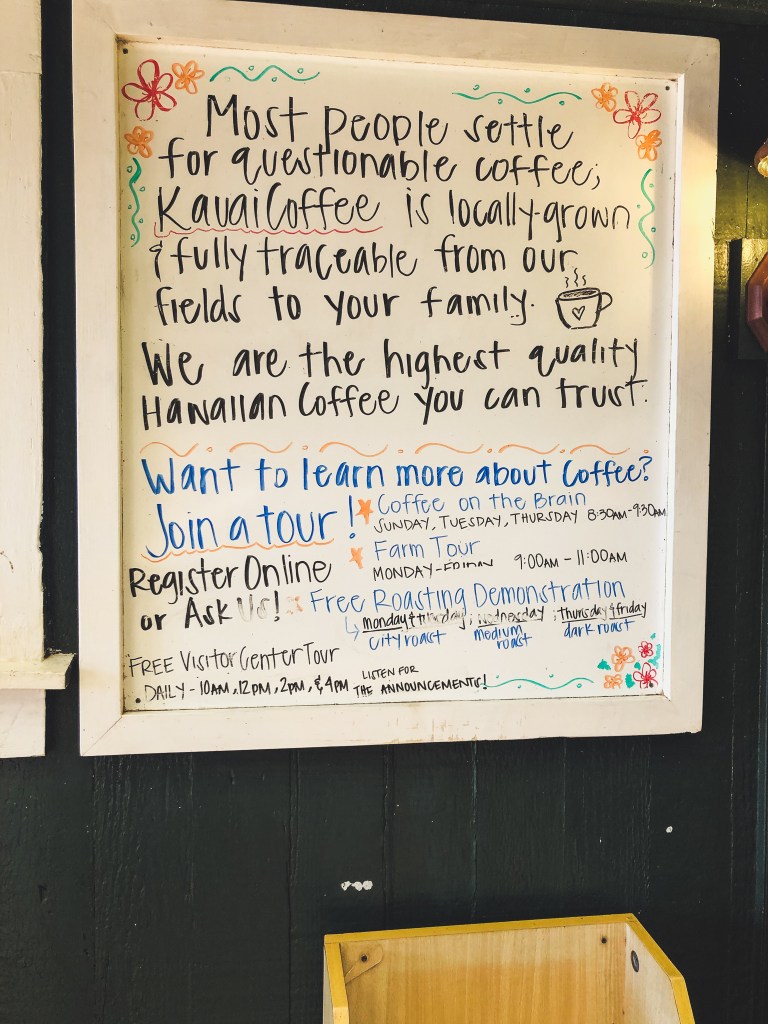 Most people settle
for questionable coffee;
Kauai Coffee is locally-grown
& fully traceable from our
fields to your family.
We are the highest quality
Hawaiian Coffee you can trust.
Want to learn more about Coffee?
Join a tour!
Coffee on the Brain
SUNDAY, TUESDAY, THURSDAY 8:30AM-9:30AM
Farm Tour
MONDAY-FRIDAY 9:00AM - 11:00AM
Register Online
or Ask Us!
Free Roasting Demonstration
monday & ; wednesday ; thursday & friday
city roast medium roast dark roast
FREE Visitor Center Tour
DAILY - 10AM, 12PM, 2PM, & 4PM
LISTEN FOR
THE ANNOUNCEMENTS!